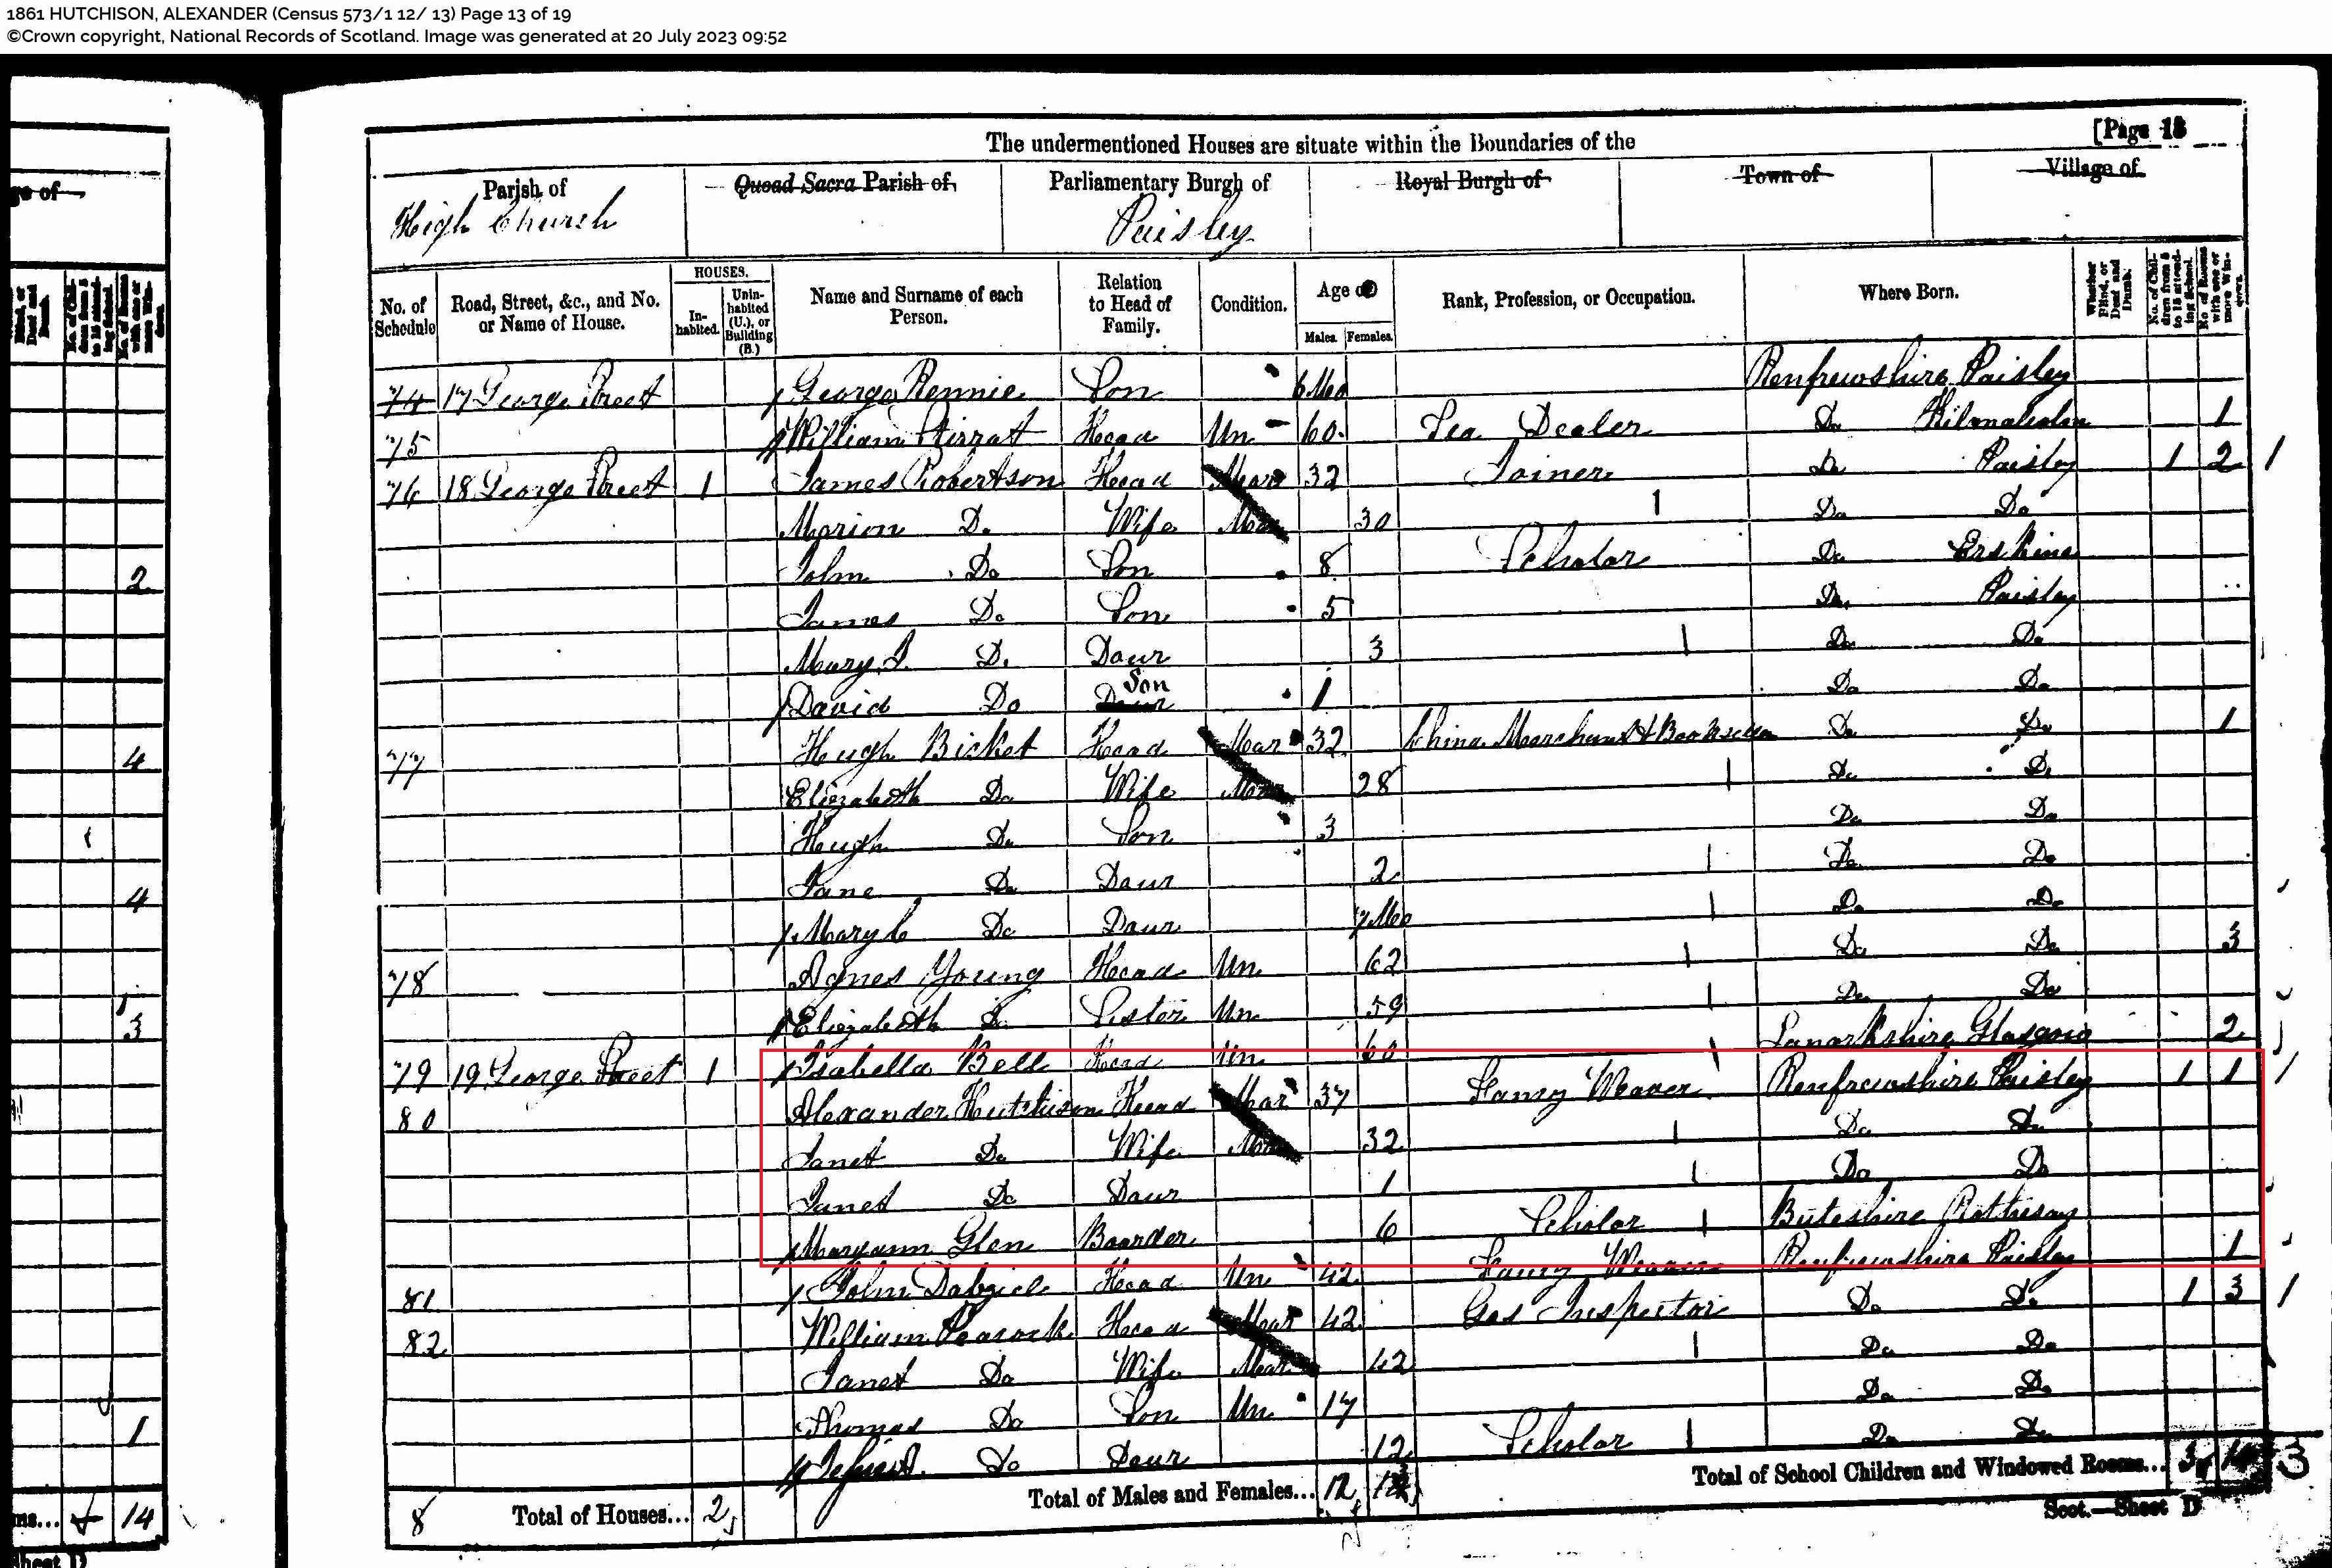 1861 HUTCHISON, ALEXANDER (Census 573/1 12/ 13) Page 13 of 19
©Crown copyright, National Records of Scotland. Image was generated at 20 July 2023 09:52
[Page 13
The undermentioned Houses are situate within the Boundaries of the
Parish of Quoad Sacra Parish of Parliamentary Burgh of Royal Burgh of Town of Village of
High Church Paisley
No. of Schedule Road, Street, &c., and No. or Name of House. HOUSES. Inhabited. Uninhabited (U.), or Building (B.) Name and Surname of each Person. Relation to Head of Family. Condition. Age of Males. Females. Rank, Profession, or Occupation. Where Born. Whether Blind, or Deaf and Dumb. No. of Children from 5 to 15 attending School. No of Rooms with one or more Windows.
74 17 George Street George Rennie Son 6 Mo Renfrewshire Paisley
75 William Stirrat Head Un 60 Tea Dealer Do Kilmalcolm 1
76 18 George Street 1 James Robertson Head Mar 32 Joiner Do Paisley 1 2 1
Marion Do Wife Mar 30 Do Do
John Do Son 8 Scholar Do Erskine
James Do Son 5 Do Paisley
Mary J. Do Daur 3 Do Do
David Do Daur Son 1 Do Do
77 Hugh Bicket Head Mar 32 China Merchant & Do Do 1
Elizabeth Do Wife Mar 28 Do Do
Hugh Do Son 3 Do Do
Jane Do Daur 2 Do Do
Mary C Do Daur 7 Mo Do Do
78 Agnes Young Head Un 62 Do Do 3
Elizabeth Do Sister Un 59 Do Do
79 19 George Street 1 Isabella Bell Head Un 60 Lanarkshire Glasgow 2
80 Alexander Hutchison Head Mar 37 Fancy Weaver Renfrewshire Paisley 1 1 1
Janet Do Wife Mar 32 Do Do
Janet Do Daur 1 Do Do
Maryann Glen Boarder 6 Scholar Buteshire Rothesay
81 John Dalziel Head Un 42 Fancy Weaver Renfrewshire Paisley 1
82 William Peacock Head Mar 42 Gas Inspector Do Do 1 3 1
Janet Do Wife Mar 42 Do Do
Thomas Do Son Un 17 Do Do
Do Daur 12 Scholar Do Do
8 Total of Houses... 2 Total of Males and Females... 12 Total of School Children and Windowed Rooms... 3 14 3
Scot.—Sheet D